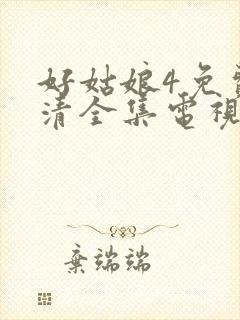 好姑娘4免
清全集電視
棄端端